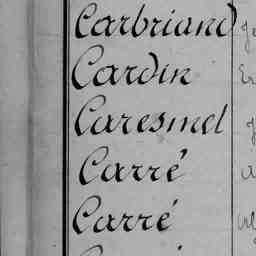 Carbriand
Cardin
Caresmel
Carré
Carré